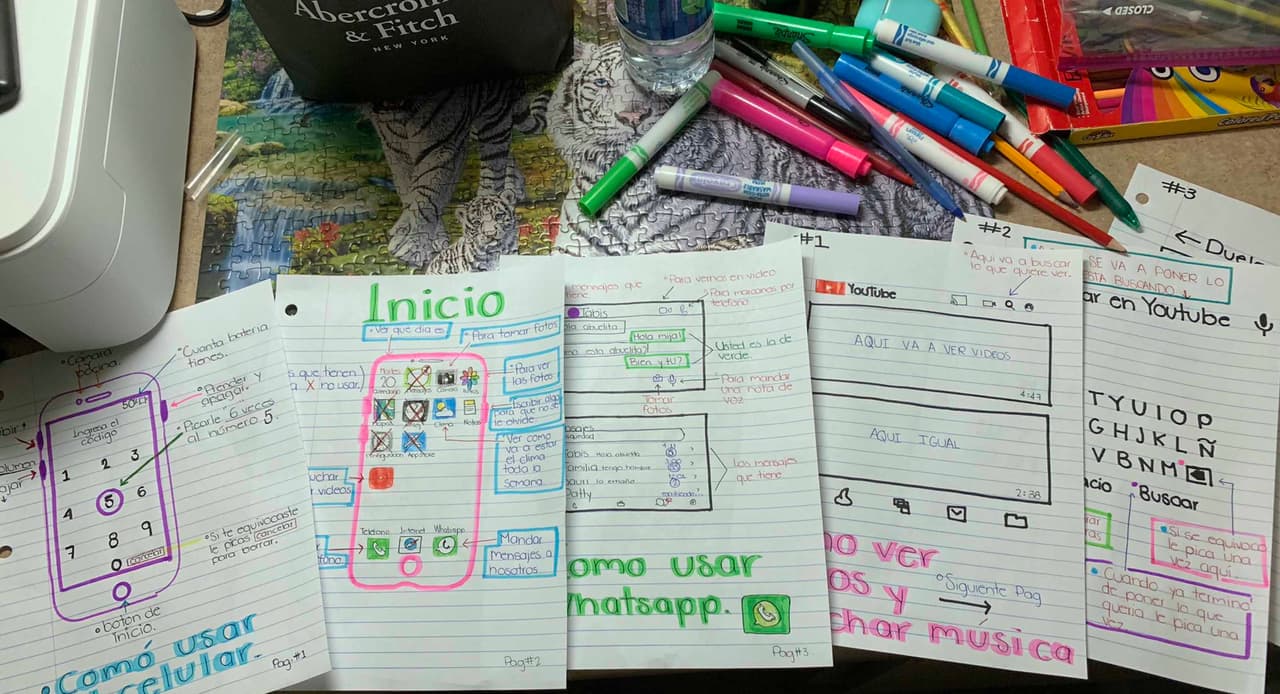 Abercrombie
& Fitch
NEW YORK
CLOSED
Sharpie
Colored
Cuanta bateria
tienes.
Camara
pagina.
50%
Prender y
apagar.
Ingresa el
código
Picarle 6 veces
al número 5.
1 2 3
4 5 6
7 8 9
0 cancelar
Si te equivocaste
le picas cancelar
para borrar.
boton de
Inicio.
Comó usar
celular.
Pag.#1
Inicio
Ver que dia es
Para tomar fotos
Martes
20
s que tienen
X no usar.)
Para ver
las fotos
Escribir algo
para que no se
le olvide.
Notas
Clima
Configuracion
App store
Ver como
va a estar
el clima
toda la
semana.
uchar
videos
Telefono Internet Whatsapp
Mandar
mensajes a
nosotros.
Pag#2
mensajes que
tiene
Para vernos en video
Para marcarnos por
telefono
Tabis
ola abuelita
Hola mija!
ma esta abuelita?
Bien y tu?
Usted es la de
verde.
Tomar
fotos
Para mandar
una nota de
voz
sajes
abis Hola abuelita
amilia tengo hambre
Patty
Los mensajes
que tiene.
omo usar
hatsapp.
Pag#3
#1
Aqui va a buscar
lo que quiere ver.
YouTube
AQUI VA A VER VIDEOS
4:47
AQUI IGUAL
2:38
o ver
os y
char música
Siguiente Pag
#2
SE VA A PONER LO
ESTA BUSCANDO
ar en Youtube
T Y U I O P
G H J K L Ñ
V B N M
acio
Buscar
Si se equivoco
le pica una
vez aqui.
Cuando ya termino
de poner lo que
queria le pica una
vez
#3
← Duela